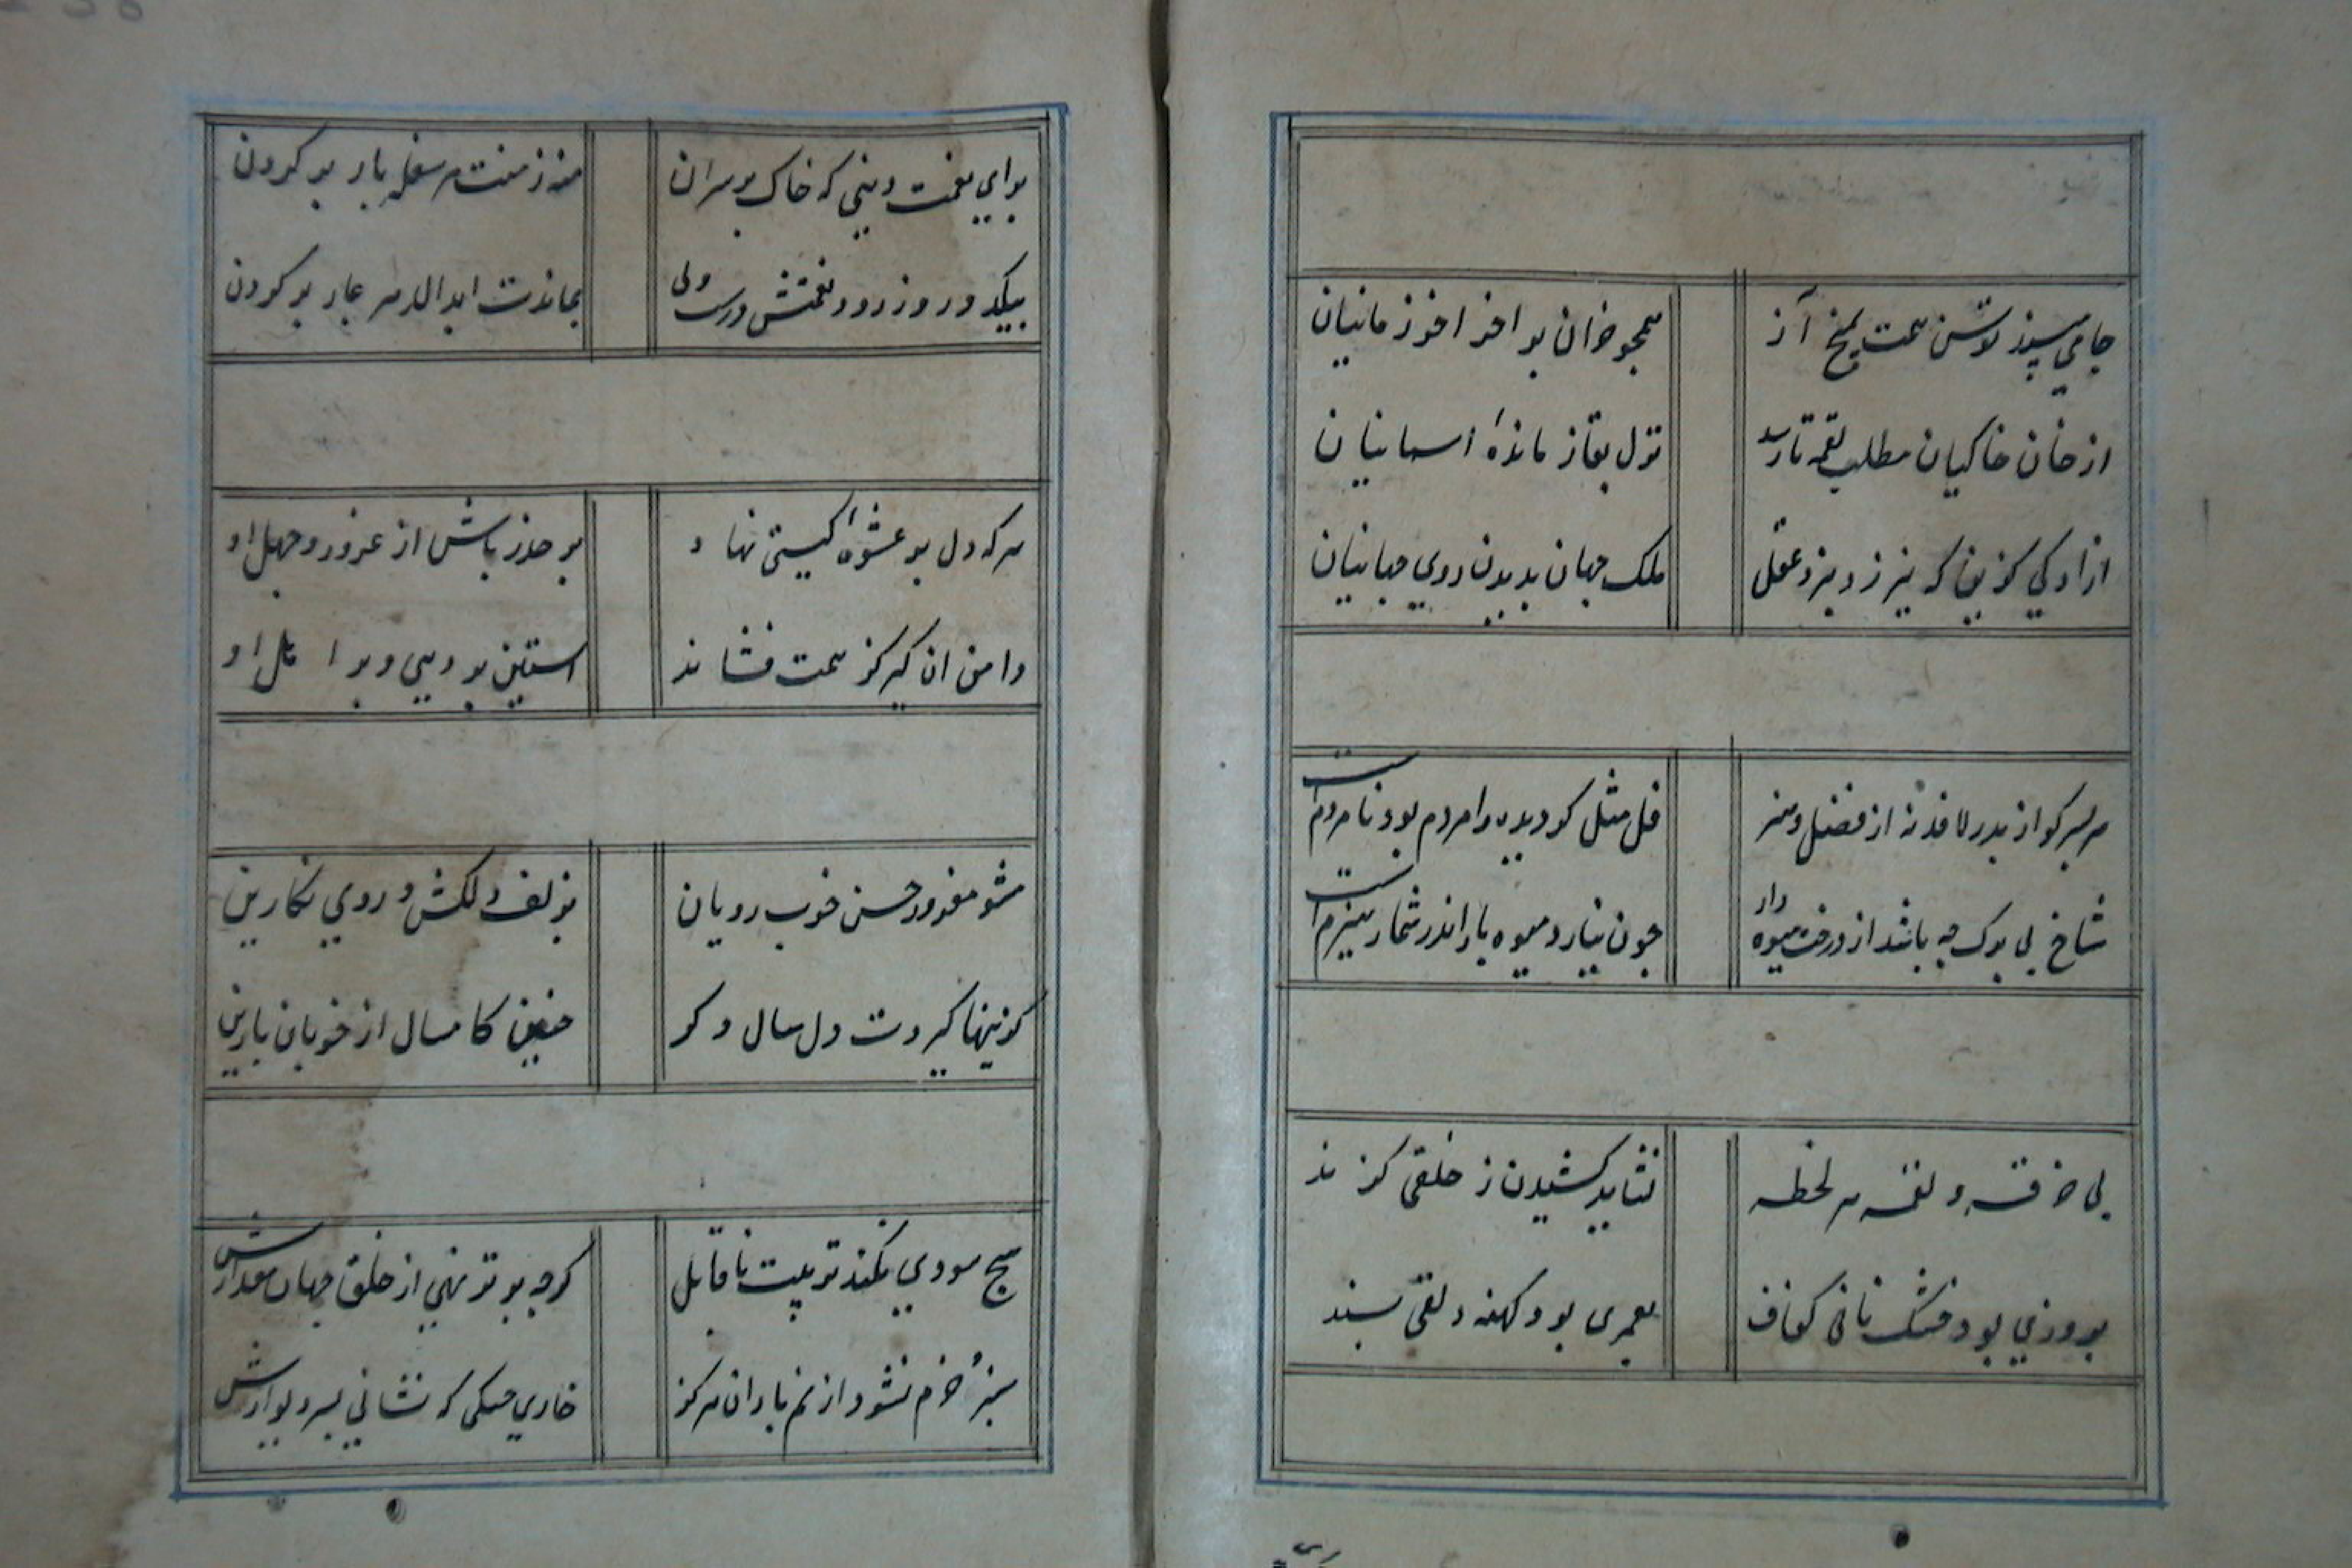 جامي مپسند توشن همت بمیخ آز همچو خران بر آخر اخور زمانیان
از خان خاکیان مطلب لقمه تا رسد نزل بقا ز مائدهٔ اسمانیان
ازادکي کزین که نیرزد بنزد عقل ملک جهان بدیدن روي جهانیان
هر پسر کو از پدر لافد نه از فضل و هنر فی المثل کر دیده را مردم بود نامردم است
شاخ بی برک چه باشد از درخت میوه دار چون نیارد میوه بار اندر شمار هیزم است
پی خرقه و لقمه هر لحظه نشاید کشیدن ز خلقی کزند
بروزي بود خشک نانی کفاف بعمری بود کهنه دلقی بسند
براي نعمت دنیي که خاک بر سر ان منه ز منت هر سفله بار بر کردن
بیکدو روز رود نعمتش ز دست ولی بماندت ابد الدهر عار بر کردن
هر که دل بر عشوهٔ کیتی نهاد بر حذر باش از غرور و جهل او
دامن ان کیر کز همت فشاند استین بر دنیي و بر اهل او
مشو مغرور حسن خوب رویان بزلف دلکش و روي نکارین
کزینها کیردت دل سال دکر چنین کامسال از خوبان پارین
هیچ سودي نکند تربیت ناقابل کرچه برتر نهي از خلق جهان مقدارش
سبز و خرم نشود از نم باران هرکز خاري خشکی که نشاني بسر دیوارش